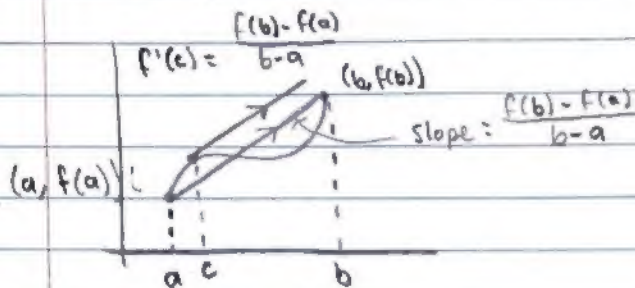 f'(c) = f(b) - f(a) / b - a
(b, f(b))
slope = f(b) - f(a) / b - a
(a, f(a))
a c b